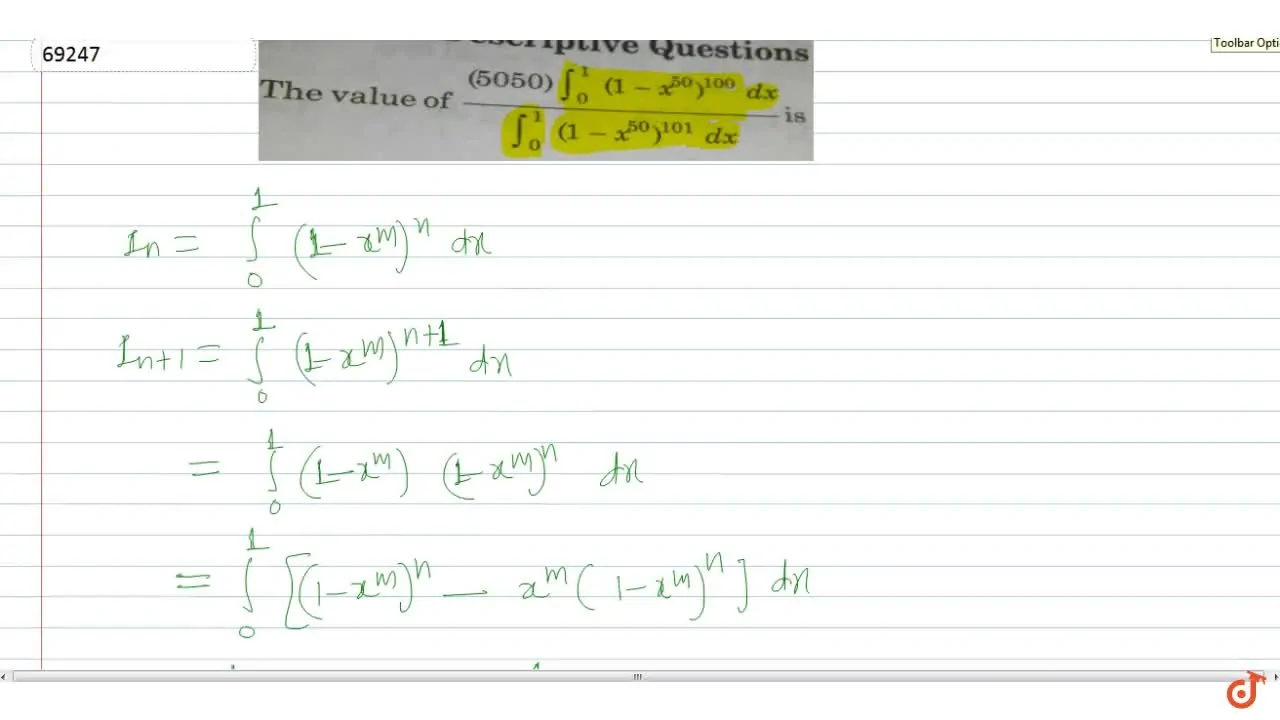 69247
Toolbar Opti
Descriptive Questions
The value of (5050) ∫₀¹ (1 − x⁵⁰)¹⁰⁰ dx / ∫₀¹ (1 − x⁵⁰)¹⁰¹ dx is
Iₙ = ∫₀¹ (1 − xᵐ)ⁿ dx
Iₙ₊₁ = ∫₀¹ (1 − xᵐ)ⁿ⁺¹ dx
= ∫₀¹ (1 − xᵐ) (1 − xᵐ)ⁿ dx
= ∫₀¹ [(1 − xᵐ)ⁿ − xᵐ (1 − xᵐ)ⁿ] dx